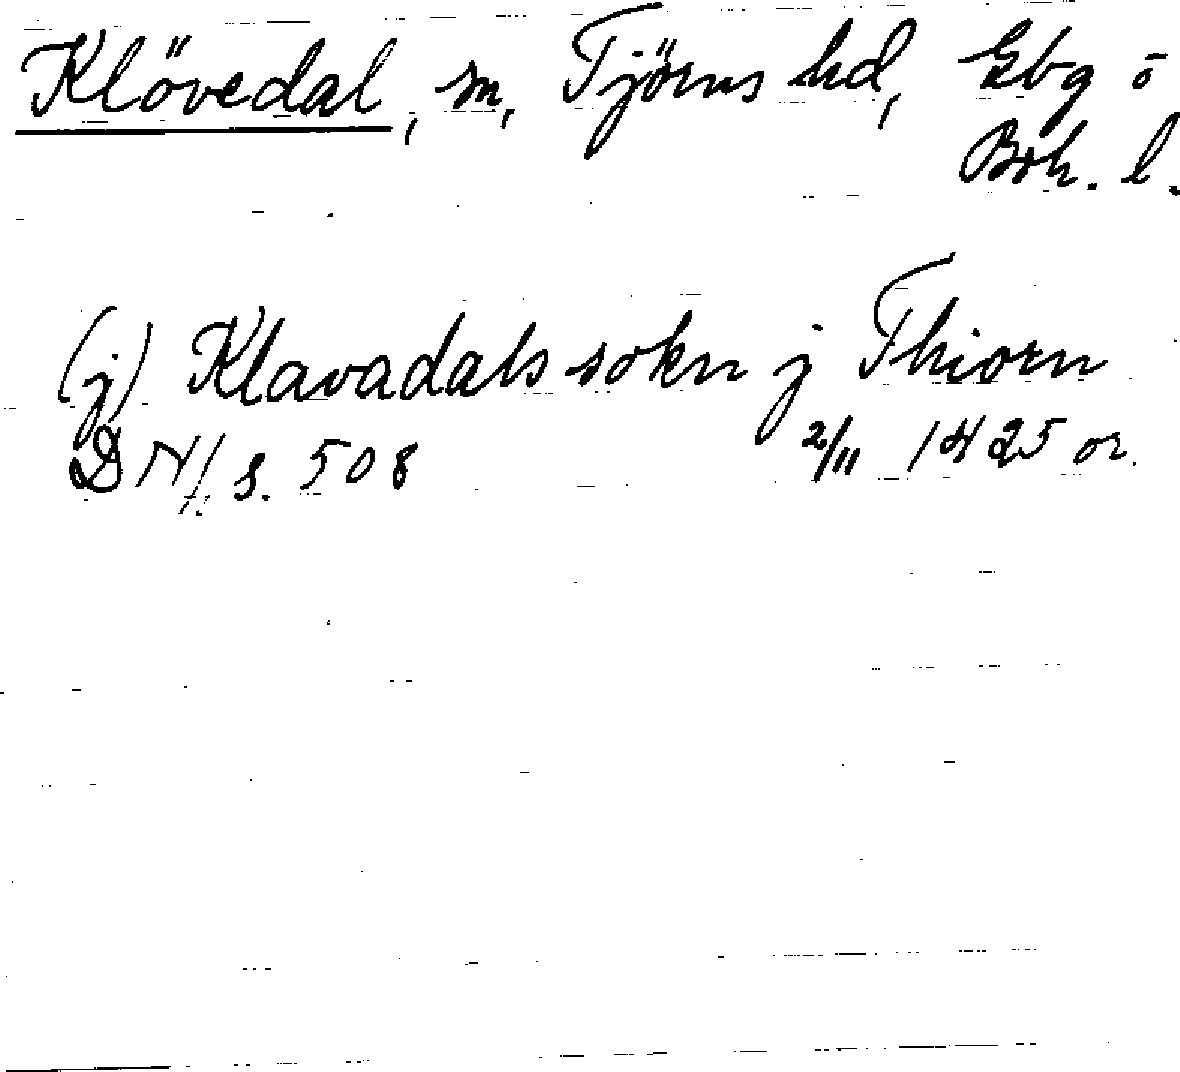 Klövedal, sn, Tjörns hd, Gbg o
Boh. l.
(j) Klavadals sokn j Thiorn
DN 1 s. 508 2/11 1425 or.